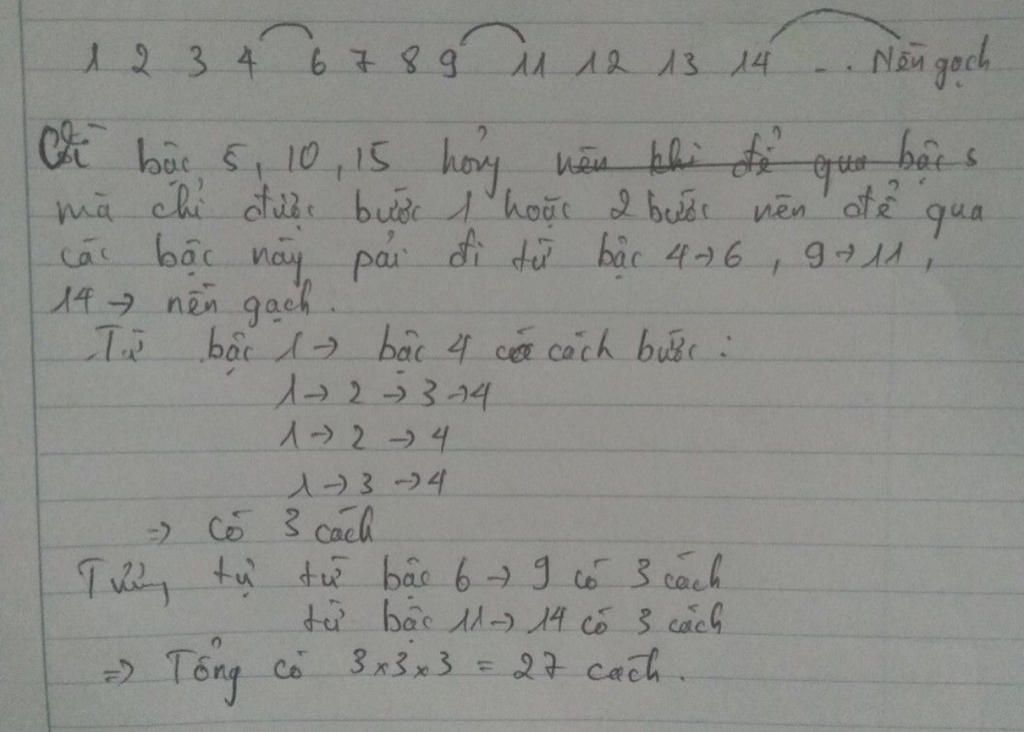 1 2 3 4 6 7 8 9 11 12 13 14 ... Nền gạch
Vì bậc 5, 10, 15 hỏng nên khi để qua bậc 5
mà chỉ được bước 1 hoặc 2 bước nên để qua
các bậc này pải đi từ bậc 4→6, 9→11,
14→ nền gạch.
Từ bậc 1→ bậc 4 có cách bước:
1→2→3→4
1→2→4
1→3→4
⇒ Có 3 cách
Tương tự từ bậc 6→9 có 3 cách
từ bậc 11→14 có 3 cách
⇒ Tổng có 3×3×3 = 27 cách.